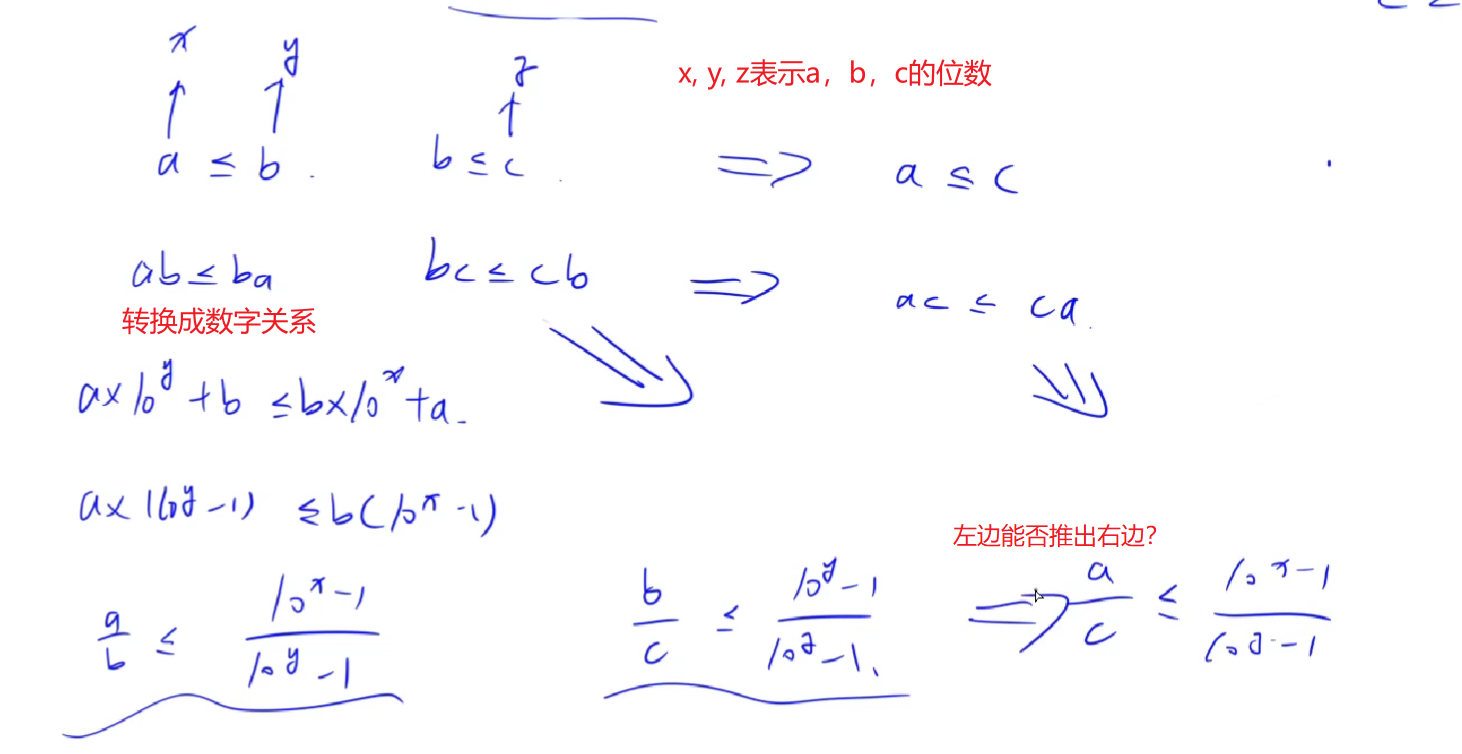 x y z x, y, z表示a，b，c的位数
a ≤ b . b ≤ c . => a ≤ c
ab ≤ ba bc ≤ cb => ac ≤ ca .
转换成数字关系
a×10^y + b ≤ b×10^x + a .
a×(10^y - 1) ≤ b(10^x - 1)
左边能否推出右边?
a/b ≤ (10^x - 1)/(10^y - 1) b/c ≤ (10^y - 1)/(10^z - 1) => a/c ≤ (10^x - 1)/(10^z - 1)